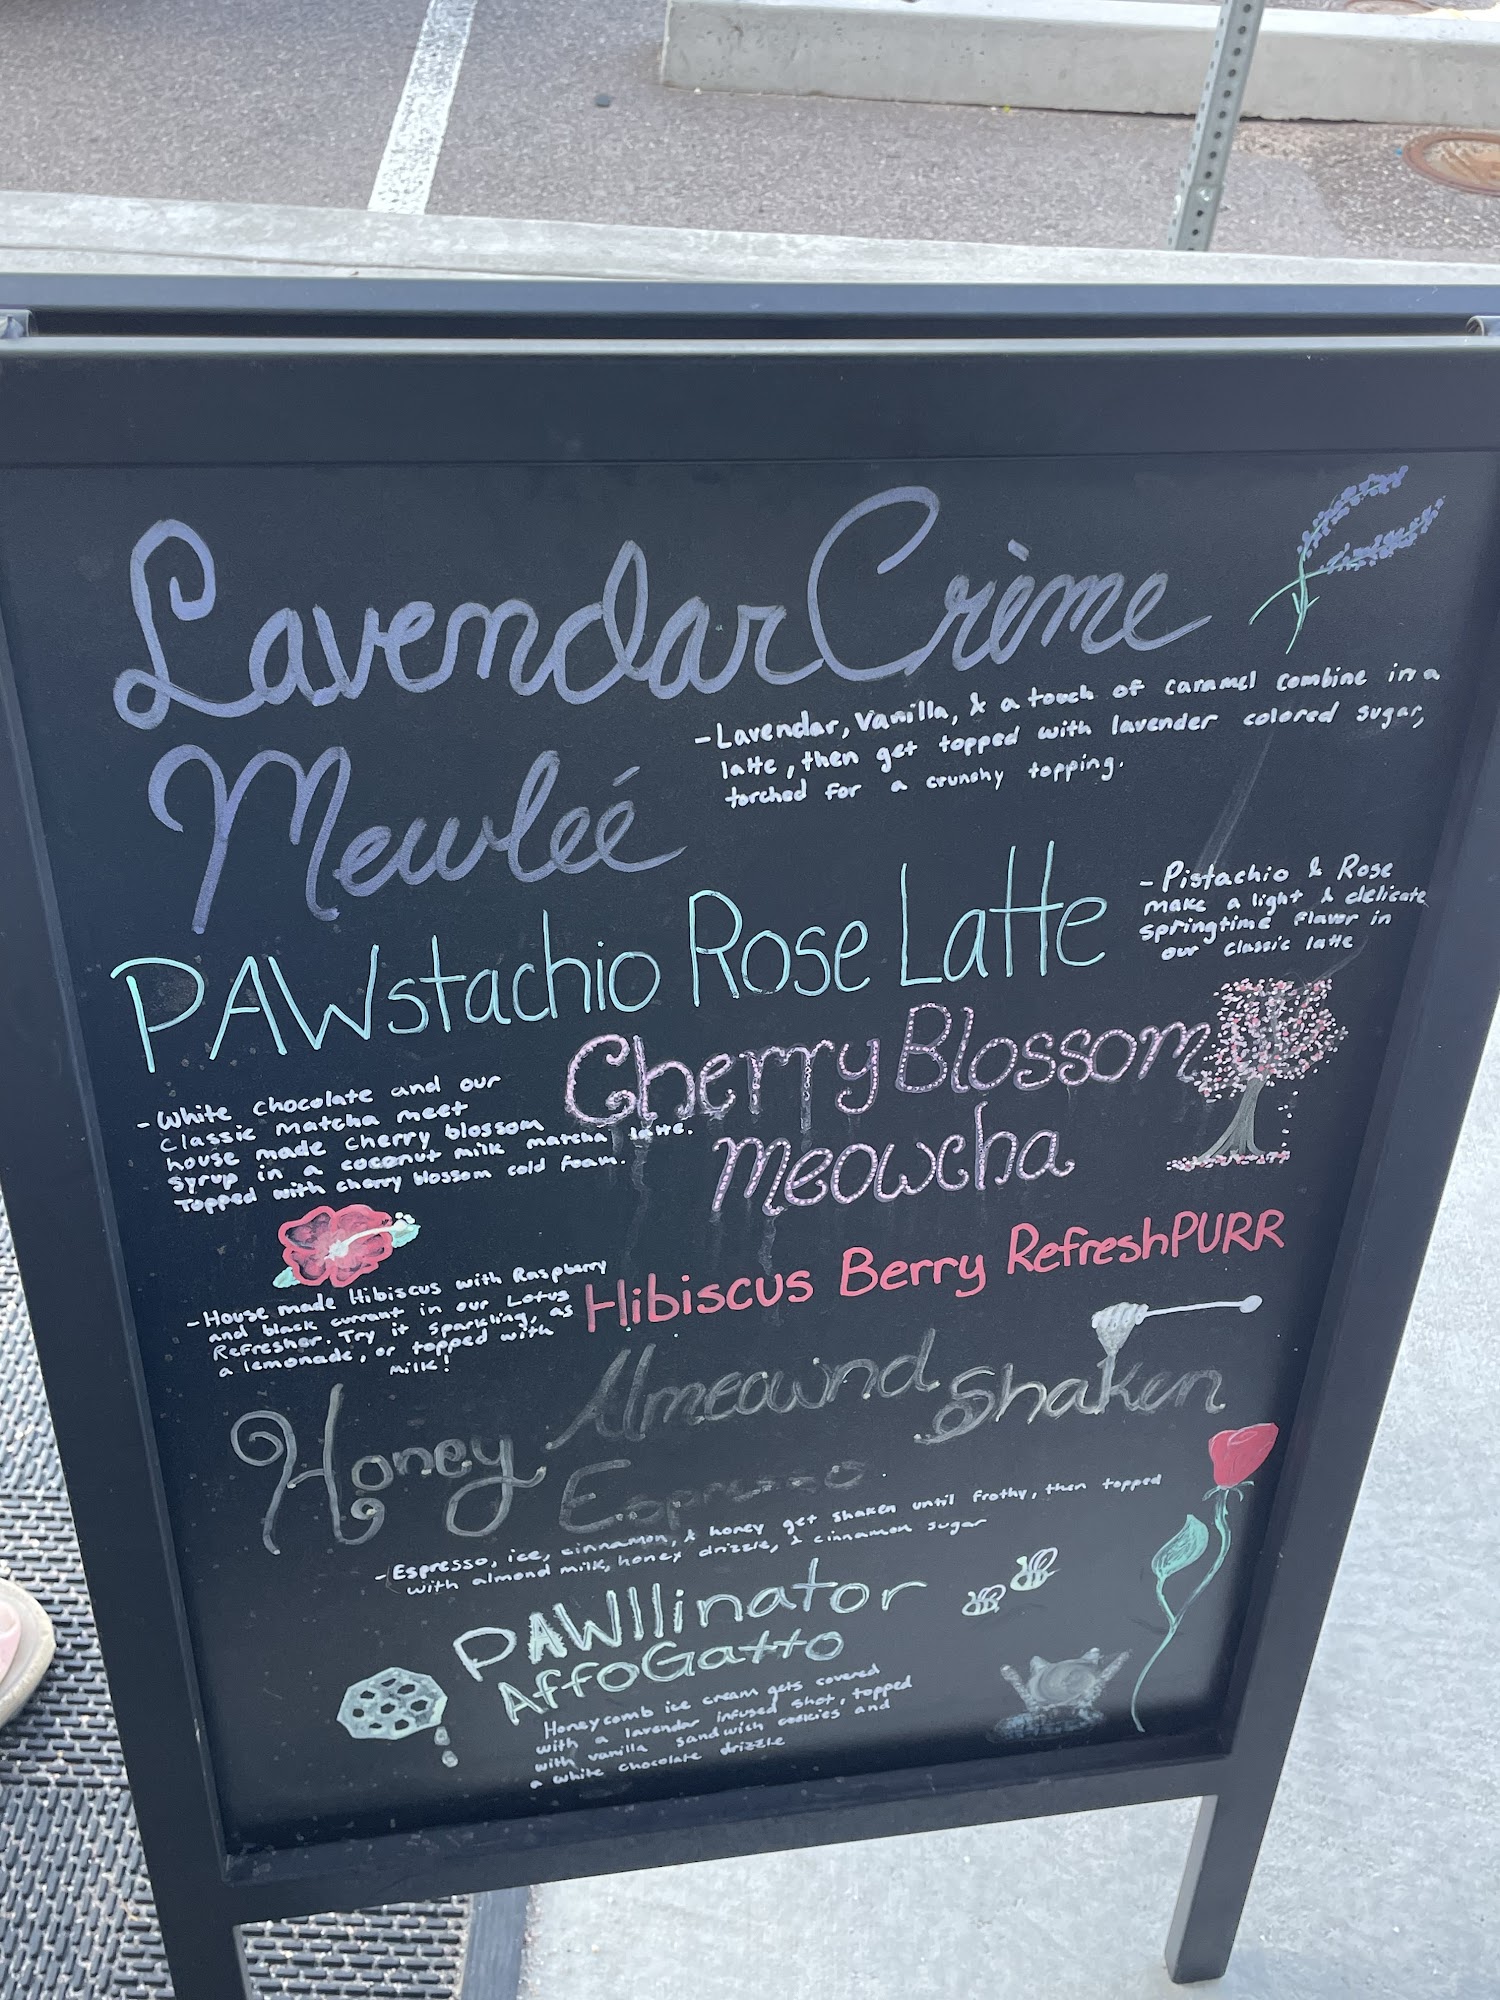 Lavendar Crème
Mewleé
-Lavendar, Vanilla, & a touch of caramel combine in a
latte, then get topped with lavender colored sugar,
torched for a crunchy topping.
PAWstachio Rose Latte
-Pistachio & Rose
make a light & delicate
springtime flavor in
our classic latte
Cherry Blossom
meowcha
-White chocolate and our
classic matcha meet
house made cherry blossom
syrup in a coconut milk matcha latte.
Topped with cherry blossom cold foam.
Hibiscus Berry RefreshPURR
-House made Hibiscus with Raspberry
and black currant in our Lotus
Refresher. Try it sparkling, as
a lemonade, or topped with
milk!
Honey Almeownd Shaken
Espresso
-Espresso, ice, cinnamon, & honey get shaken until frothy, then topped
with almond milk, honey drizzle, & cinnamon sugar
PAWllinator
AffoGatto
Honeycomb ice cream gets covered
with a lavendar infused shot, topped
with vanilla sandwish cookies and
a white chocolate drizzle